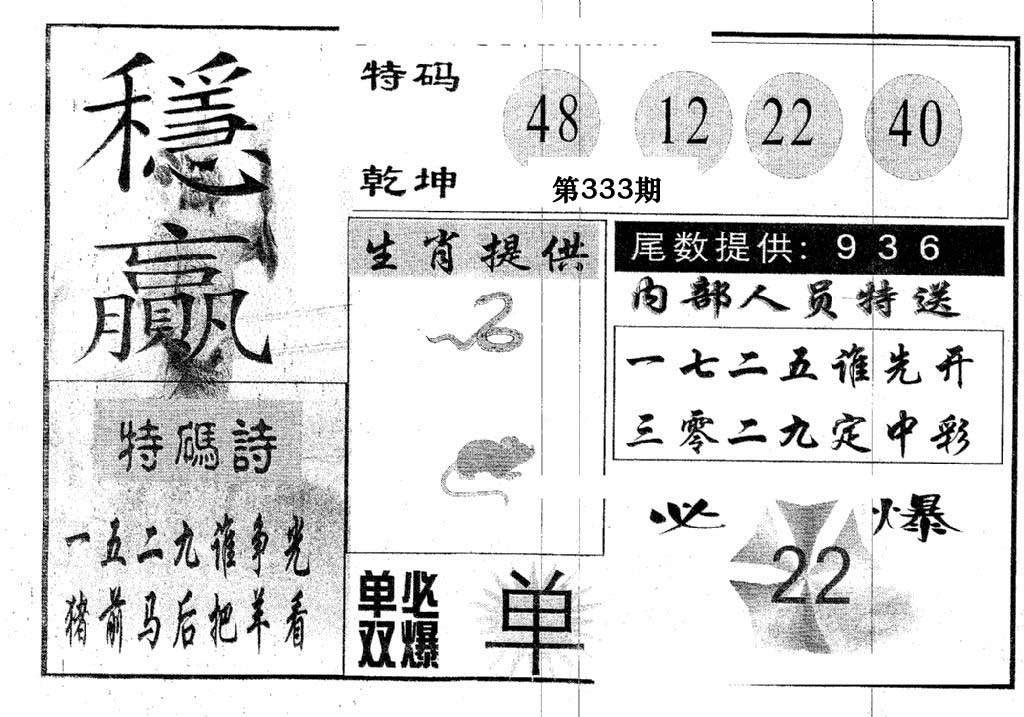 穩
贏
特码
乾坤
48 12 22 40
第333期
生肖提供
尾数提供: 9 3 6
内部人员特送
一七二五谁先开
三零二九定中彩
特碼詩
一五二九谁争光
猪前马后把羊看
单双
必爆
单
必爆
22